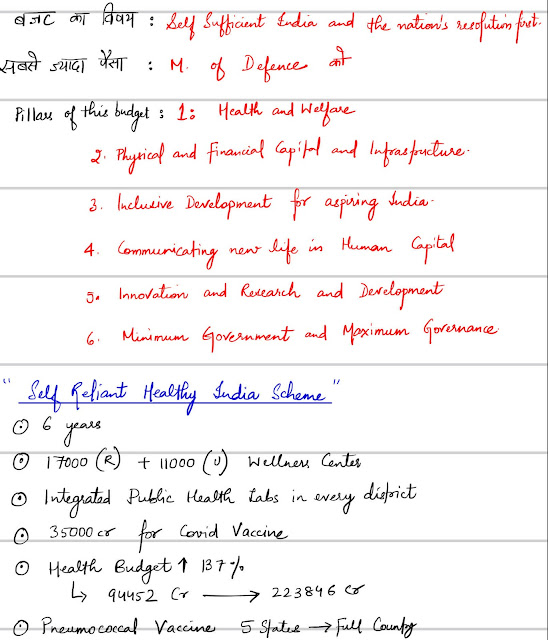 बजट का विषय : Self Sufficient India and the nation's resolution first.
सबसे ज्यादा पैसा : M. of Defence को
Pillars of this budget : 1: Health and Welfare
2. Physical and Financial Capital and Infrastructure.
3. Inclusive Development for aspiring India.
4. Communicating new life in Human Capital
5. Innovation and Research and Development
6. Minimum Government and Maximum Governance.
" Self Reliant Healthy India Scheme "
⊙ 6 years
⊙ 17000 (R) + 11000 (U) Wellness Center
⊙ Integrated Public Health Labs in every district
⊙ 35000 cr for Covid Vaccine
⊙ Health Budget ↑ 137%
↳ 94452 Cr → 223846 Cr
⊙ Pneumococcal Vaccine 5 States → Full County